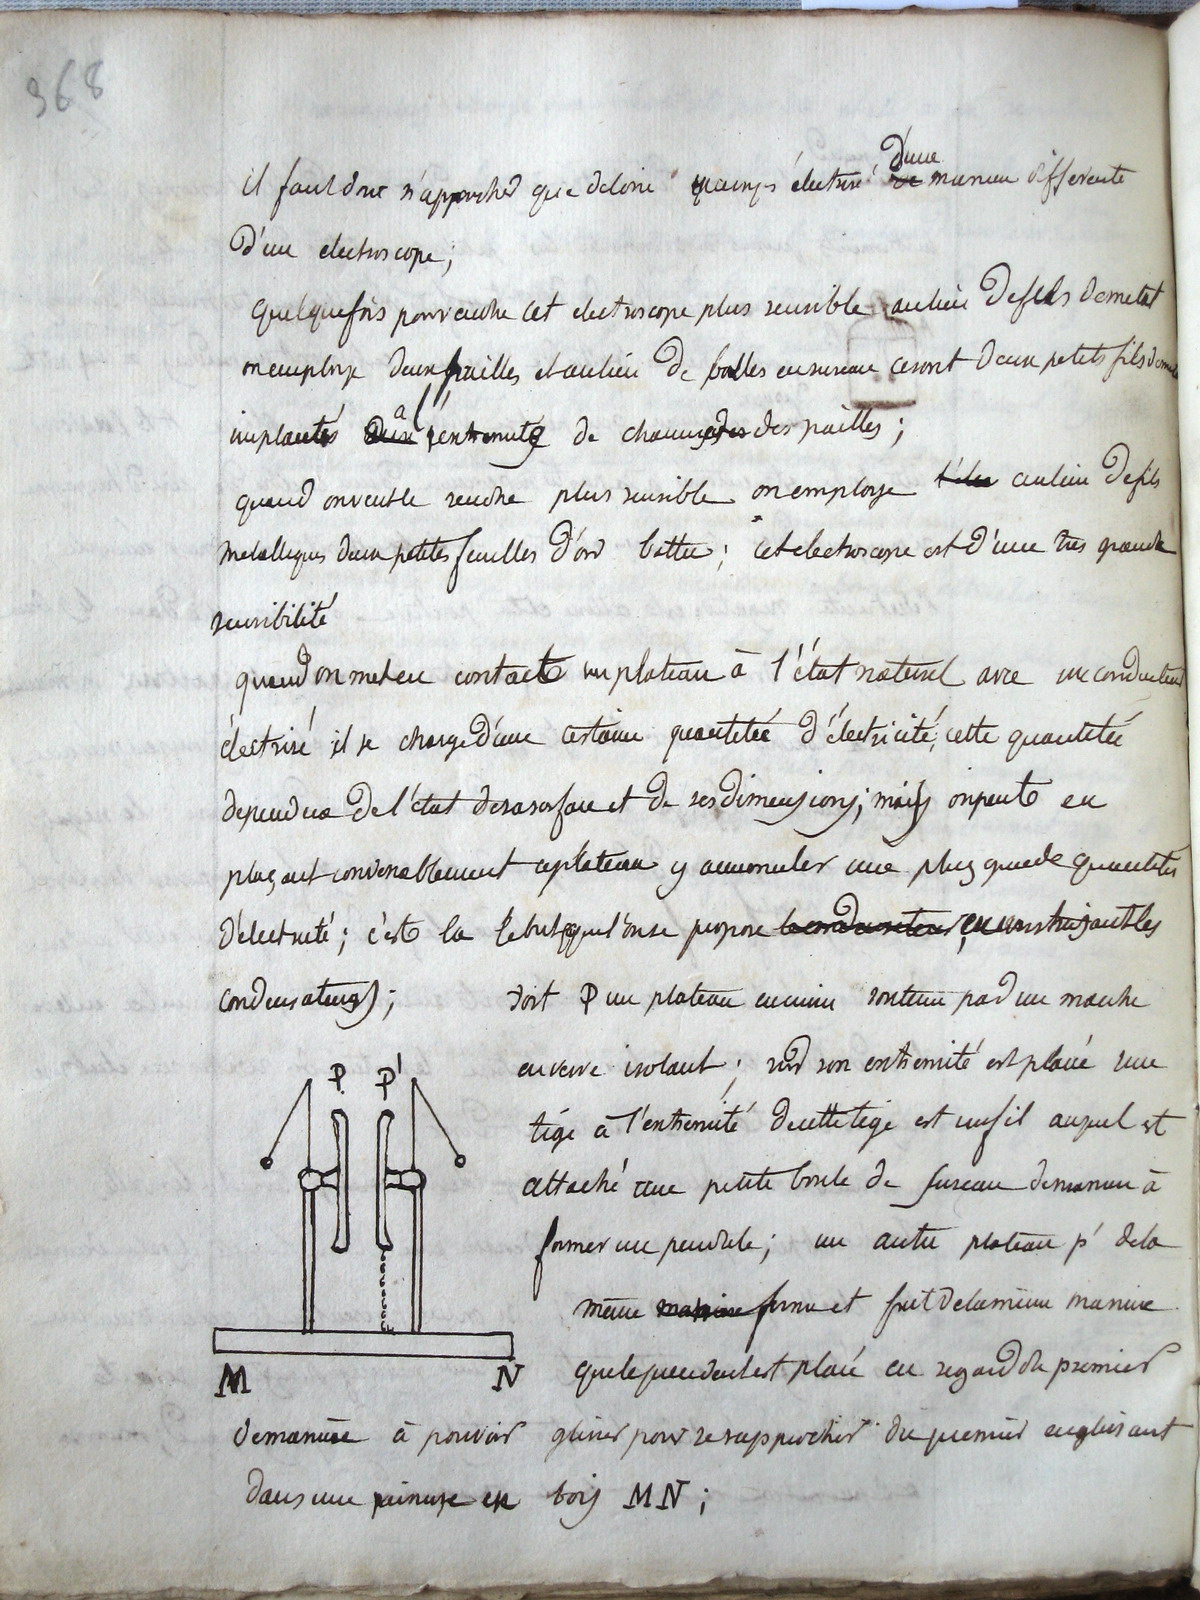 368
il faut donc n'approcher que de loin un corps électrisé d'une manière differente
D'un electroscope;
quelquefois pour rendre cet electroscope plus sensible au lieu De fils De metal
on employe deux pailles et au lieu De balles en sureau ce sont deux petits fils
implantés à l'extremité de chacune des pailles;
quand on veut le rendre plus sensible on employe au lieu De fils
metalliques deux petites feuilles D'or battu; cet electroscope est D'une très grande
sensibilité
quand on met en contact un plateau à l'état naturel avec un conducteur
électrisé il se charge D'une certaine quantitée D'électricité, cette quantitée
dependra De l'état de sa surface et De ses dimensions; mais on peut en
plaçant convenablement ce plateau y accumuler une plus grande quantités
D'électricité; c'est la le but que l'on se propose en construisant les
condensateurs;
soit P un plateau en soutenu par un manche
en verre isolant; sur son extremité est placé une
tige à l'extremité de cette tige est un fil auquel est
attaché une petite boule de sureau de manière à
former un pendule; un autre plateau p' de la
même forme et fait de la même maniere
que le precedent est placé en regard du premier
P P'
M N
de manière à pouvoir glisser pour se rapprocher du premier en glissant
dans une rainure en bois MN;